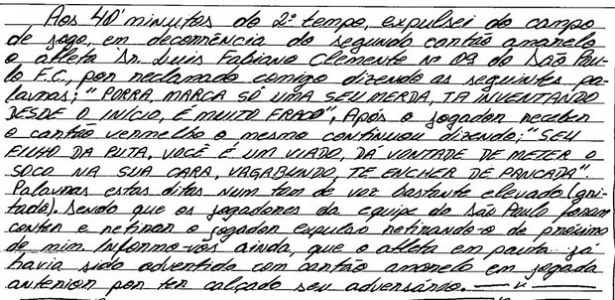 Aos 40' minutos do 2º tempo, expulsei do campo
de jogo, em decorrência do segundo cartão amarelo
o atleta Sr. Luis Fabiano Clemente nº 09 do São Pau-
lo F.C, por reclamado comigo dizendo as seguintes pa-
lavras; "PORRA, MARCA SÓ UMA SEU MERDA, TA INVENTANDO
DESDE O INÍCIO, É MUITO FRACO", Após o jogador receber
o cartão vermelho o mesmo continuou dizendo; "SEU
FILHO DA PUTA, VOCÊ É UM VIADO, DÁ VONTADE DE METER O
SOCO NA SUA CARA, VAGABUNDO, TE ENCHER DE PANCADA".
Palavras estas ditas num tom de voz bastante elevado (gri-
tado). Sendo que os jogadores da equipe do São Paulo foram
conter e retirar o jogador expulso retirando-o de próximo
de mim. Informo-vos ainda, que o atleta em pauta já
havia sido advertido com cartão amarelo em jogada
anterior por ter calçado seu adversário.